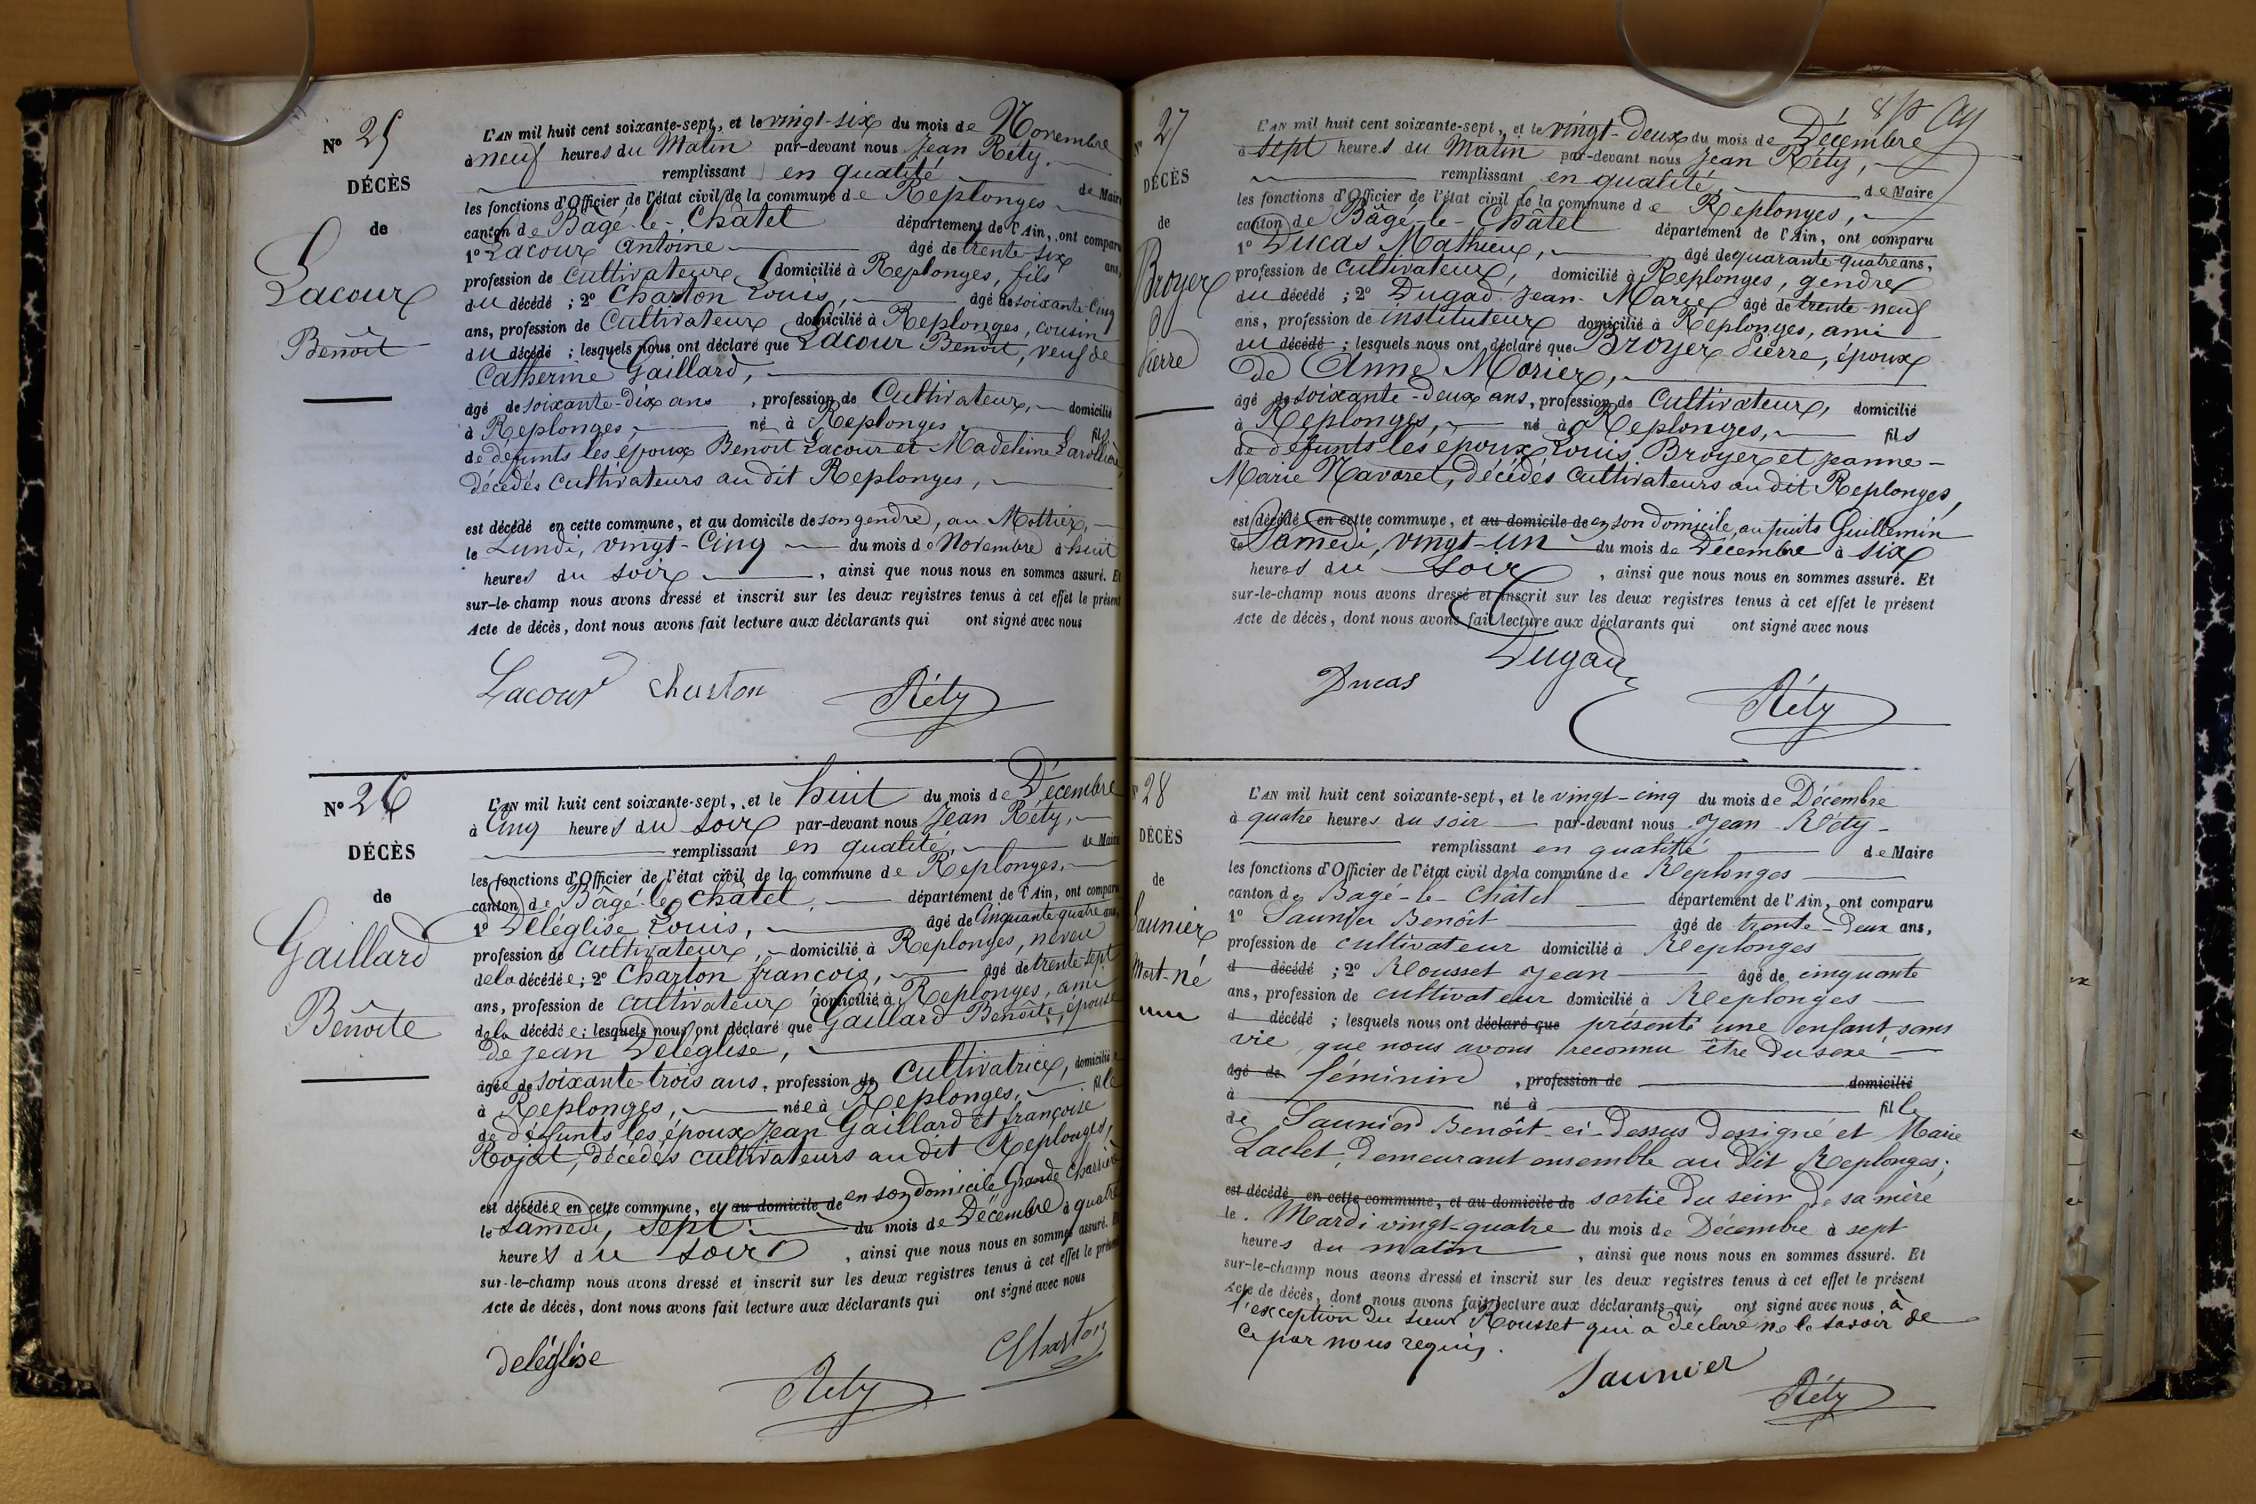 N° 25
DÉCÈS
de
Lacour
Benoît
L'AN mil huit cent soixante-sept, et le vingt-six du mois de Novembre
à neuf heures du Matin par-devant nous Jean Réty,
remplissant en qualité de Maire
les fonctions d'Officier de l'état civil de la commune de Replonges
canton de Bâgé-le-Châtel département de l'Ain, ont comparu
1° Lacour Antoine âgé de trente-six ans,
profession de Cultivateur, domicilié à Replonges, fils
du décédé ; 2° Charton Louis, âgé de soixante-Cinq
ans, profession de Cultivateur domicilié à Replonges, cousin
du décédé ; lesquels nous ont déclaré que Lacour Benoît, veuf de
Catherine Gaillard,
âgé de soixante-dix ans, profession de Cultivateur, domicilié
à Replonges, né à Replonges fils
de défunts les époux Benoit Lacour et Madeleine
décédés cultivateurs au dit Replonges,
est décédé en cette commune, et au domicile de son gendre, au Mottier,
le Lundi, vingt-Cinq du mois de Novembre à huit
heures du soir, ainsi que nous nous en sommes assuré. Et
sur-le-champ nous avons dressé et inscrit sur les deux registres tenus à cet effet le présent
Acte de décès, dont nous avons fait lecture aux déclarants qui ont signé avec nous
Lacour Charton Réty
N° 26
DÉCÈS
de
Gaillard
Benoîte
L'AN mil huit cent soixante-sept, et le huit du mois de Décembre
à Cinq heures du soir par-devant nous Jean Réty,
remplissant en qualité, de Maire
les fonctions d'Officier de l'état civil de la commune de Replonges,
canton de Bâgé-le-Châtel, département de l'Ain, ont comparu
1° Deléglise Louis, âgé de Cinquante-quatre ans,
profession de Cultivateur, domicilié à Replonges, neveu
de la décédée ; 2° Charton françois, âgé de trente-sept
ans, profession de Cultivateur domicilié à Replonges, ami
de la décédée ; lesquels nous ont déclaré que Gaillard Benoîte, épouse
de Jean Deléglise,
âgée de soixante-trois ans, profession de Cultivatrice, domiciliée
à Replonges, née à Replonges, fille
de défunts les époux Jean Gaillard et françoise
Rojat, décédés cultivateurs au dit Replonges,
est décédée en cette commune, et au domicile de en son domicile Grande Charrière
le Samedi, sept du mois de Décembre à quatre
heures du soir, ainsi que nous nous en sommes assuré. Et
sur-le-champ nous avons dressé et inscrit sur les deux registres tenus à cet effet le présent
Acte de décès, dont nous avons fait lecture aux déclarants qui ont signé avec nous
deléglise Réty Charton
N° 27
DÉCÈS
de
Broyer
Pierre
L'AN mil huit cent soixante-sept, et le vingt-deux du mois de Décembre
à sept heures du Matin par-devant nous Jean Réty,
remplissant en qualité, de Maire
les fonctions d'Officier de l'état civil de la commune de Replonges,
canton de Bâgé-le-Châtel département de l'Ain, ont comparu
1° Ducas Mathieu, âgé de quarante-quatre ans,
profession de Cultivateur, domicilié à Replonges, gendre
du décédé ; 2° Dugad Jean-Marie âgé de trente-neuf
ans, profession de instituteur domicilié à Replonges, ami
du décédé ; lesquels nous ont déclaré que Broyer Pierre, époux
de Anne Morier,
âgé de soixante-deux ans, profession de Cultivateur, domicilié
à Replonges, né à Replonges, fils
de défunts les époux Louis Broyer et Jeanne-
Marie Navoret, décédés Cultivateurs au dit Replonges,
est décédé en cette commune, et au domicile de en son domicile, au puits Guillemin
le Samedi, vingt-un du mois de Décembre à six
heures du soir, ainsi que nous nous en sommes assuré. Et
sur-le-champ nous avons dressé et inscrit sur les deux registres tenus à cet effet le présent
Acte de décès, dont nous avons fait lecture aux déclarants qui ont signé avec nous
Dugad
Ducas Réty
N° 28
DÉCÈS
de
Saunier
Mort-né
L'AN mil huit cent soixante-sept, et le vingt-cinq du mois de Décembre
à quatre heures du soir par-devant nous Jean Réty
remplissant en qualité de Maire
les fonctions d'Officier de l'état civil de la commune de Replonges
canton de Bagé-le-Châtel département de l'Ain, ont comparu
1° Saunier Benoît âgé de trente-deux ans,
profession de cultivateur domicilié à Replonges
d décédé ; 2° Rousset Jean âgé de cinquante
ans, profession de cultivateur domicilié à Replonges
d décédé ; lesquels nous ont déclaré que présenté une enfant sans
vie, que nous avons reconnu être du sexe
âgé de féminin, profession de domicilié
à né à fille
de Saunier Benoît ci-dessus dessigné et Marie
Laclet, demeurant ensemble au dit Replonges;
est décédé en cette commune, et au domicile de sortie du sein de sa mère
le Mardi vingt-quatre du mois de Décembre à sept
heures du matin, ainsi que nous nous en sommes assuré. Et
sur-le-champ nous avons dressé et inscrit sur les deux registres tenus à cet effet le présent
Acte de décès, dont nous avons fait lecture aux déclarants qui ont signé avec nous à
l'exception du sieur Rousset qui a déclaré ne le savoir de
ce par nous requis.
Saunier Réty